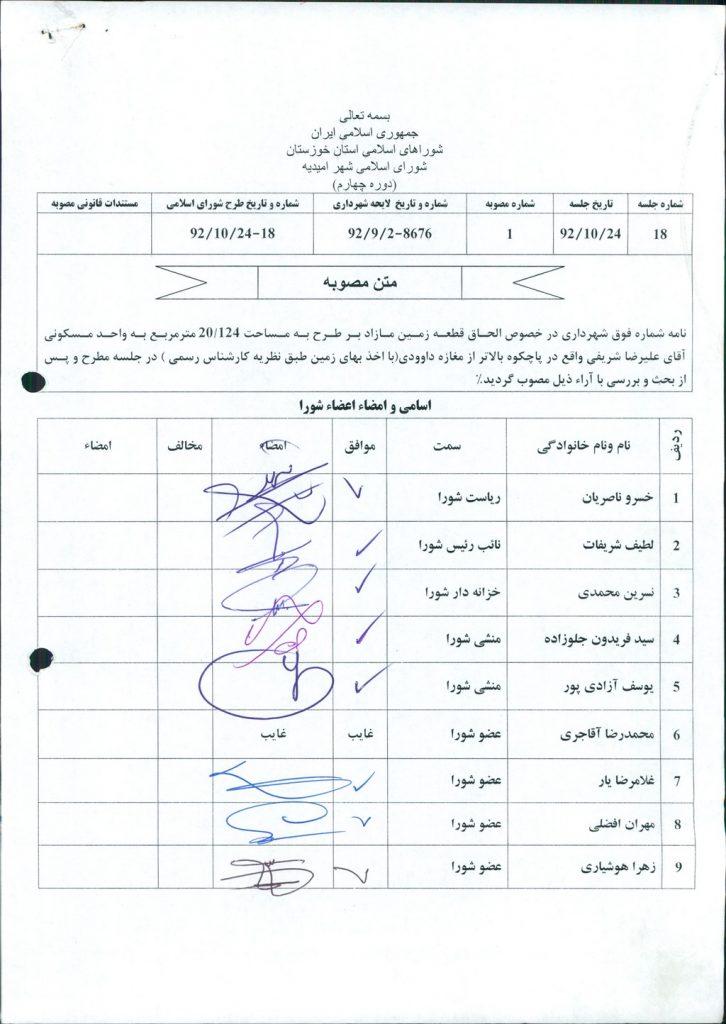 بسمه تعالی
جمهوری اسلامی ایران
شوراهای اسلامی استان خوزستان
شورای اسلامی شهر امیدیه
(دوره چهارم)
شماره جلسه تاریخ جلسه شماره مصوبه شماره و تاریخ لایحه شهرداری شماره و تاریخ طرح شورای اسلامی مستندات قانونی مصوبه
18 92/10/24 1 92/9/2-8676 92/10/24-18
متن مصوبه
نامه شماره فوق شهرداری در خصوص الحاق قطعه زمین مازاد بر طرح به مساحت 20/124 مترمربع به واحد مسکونی
آقای علیرضا شریفی واقع در پاچکوه بالاتر از مغازه داوودی(با اخذ بهای زمین طبق نظریه کارشناس رسمی ) در جلسه مطرح و پس
از بحث و بررسی با آراء ذیل مصوب گردید.٪
اسامی و امضاء اعضاء شورا
ردیف نام ونام خانوادگی سمت موافق امضاء مخالف امضاء
1 خسرو ناصریان ریاست شورا
2 لطیف شریفات نائب رئیس شورا
3 نسرین محمدی خزانه دار شورا
4 سید فریدون جلوزاده منشی شورا
5 یوسف آزادی پور منشی شورا
6 محمدرضا آقاجری عضو شورا غایب غایب
7 غلامرضا یار عضو شورا
8 مهران افضلی عضو شورا
9 زهرا هوشیاری عضو شورا